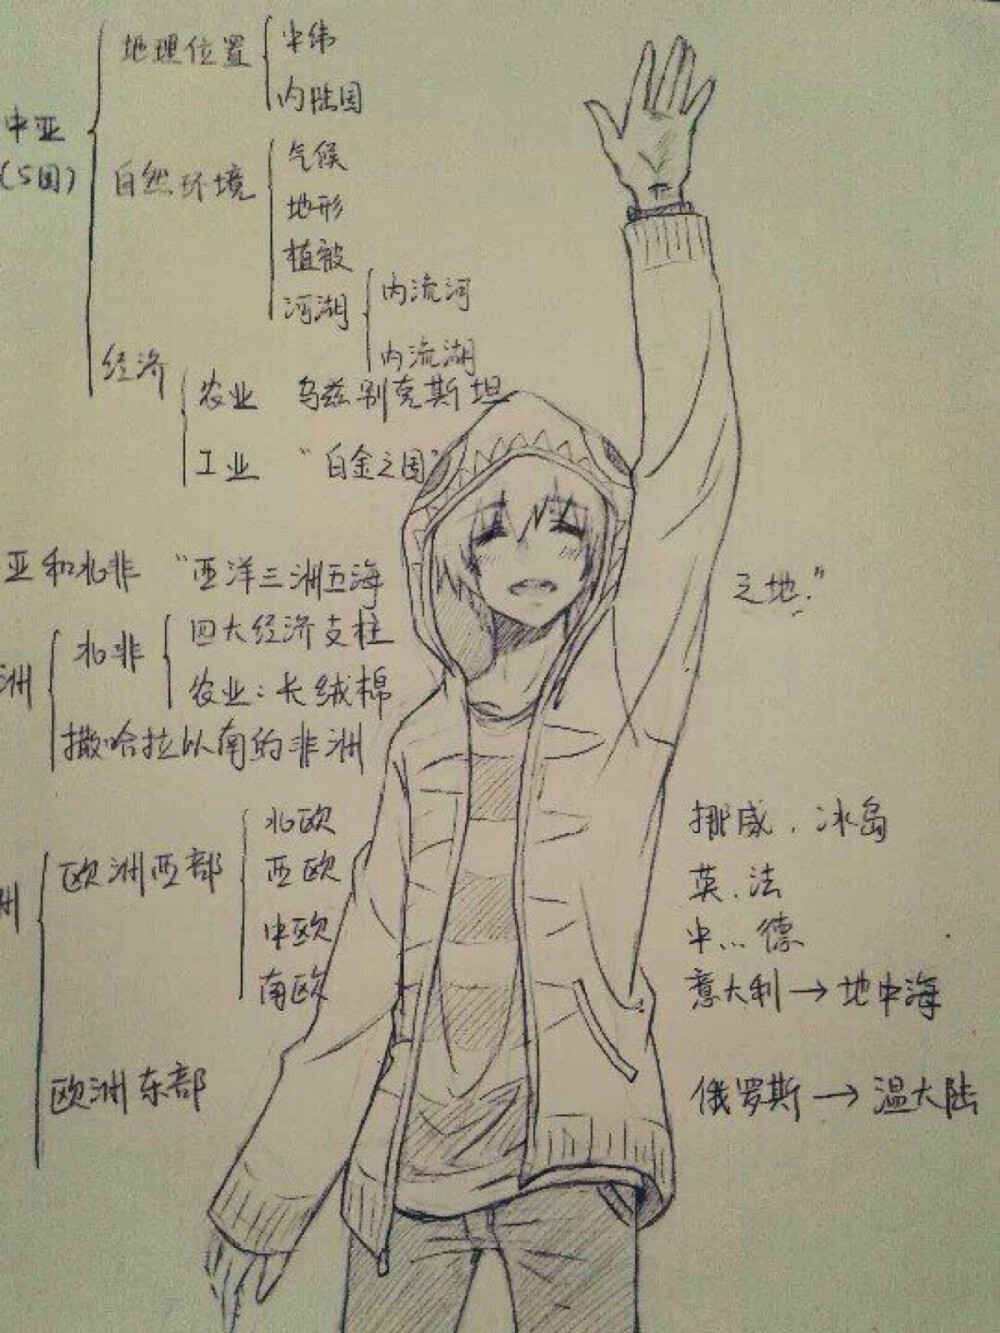 地理位置 中纬
内陆国
中亚
(5国)
自然环境 气候
地形
植被
河湖 内流河
内流湖
经济 农业 乌兹别克斯坦
工业 “白金之国”
亚和北非 “西洋三洲五海
之地.”
洲 北非 四大经济支柱
农业:长绒棉
撒哈拉以南的非洲
欧洲西部 北欧 挪威、冰岛
西欧 英、法
中欧 中…德
南欧 意大利→地中海
欧洲东部 俄罗斯→温大陆